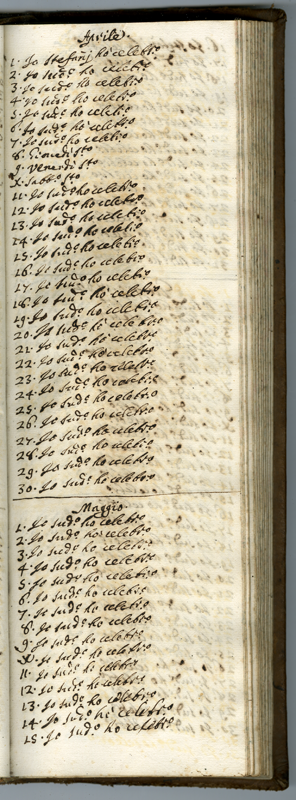 Aprile.
1. Io Stefanj ho celebr.o
2. Io sud.o ho celebr.o
3. Io sud.o ho celebr.o
4. Io sud.o ho celebr.o
5. Io sud.o ho celebr.o
6. Io sud.o ho celebr.o
7. Io sud.o ho celebr.o
8. Giovedì S.to
9. Venerdì S.to
X. Sabb.o S.to
11. Io sud.o ho celebr.o
12. Io sud.o ho celebr.o
13. Io sud.o ho celebr.o
14. Io sud.o ho celebr.o
15. Io sud.o ho celebr.o
16. Io sud.o ho celebr.o
17. Io sud.o ho celebr.o
18. Io sud.o ho celebr.o
19. Io sud.o ho celebr.o
20. Io sud.o ho celebr.o
21. Io sud.o ho celebr.o
22. Io sud.o ho celebr.o
23. Io sud.o ho celebr.o
24. Io sud.o ho celebr.o
25. Io sud.o ho celebr.o
26. Io sud.o ho celebr.o
27. Io sud.o ho celebr.o
28. Io sud.o ho celebr.o
29. Io sud.o ho celebr.o
30. Io sud.o ho celebr.o
Maggio
1. Io sud.o ho celebr.o
2. Io sud.o ho celebr.o
3. Io sud.o ho celebr.o
4. Io sud.o ho celebr.o
5. Io sud.o ho celebr.o
6. Io sud.o ho celebr.o
7. Io sud.o ho celebr.o
8. Io sud.o ho celebr.o
9. Io sud.o ho celebr.o
X. Io sud.o ho celebr.o
11. Io sud.o ho celebr.o
12. Io sud.o ho celebr.o
13. Io sud.o ho celebr.o
14. Io sud.o ho celebr.o
15. Io sud.o ho celebr.o